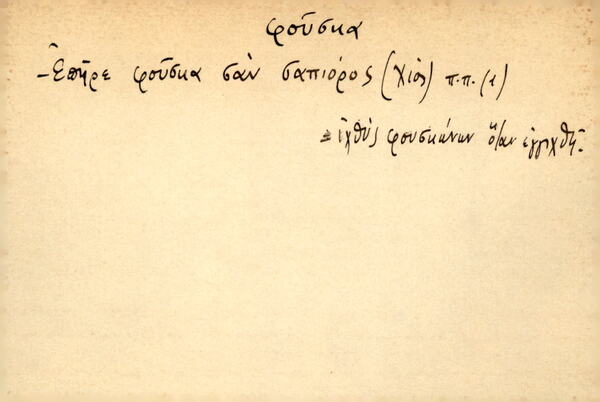 φοῦσκα
-Ἐπῆρε φοῦσκα σὰν σαπιόρος (Χίος) π.π. (1)
= ἰχθὺς φουσκώνων ὅταν ἐγγιχθῇ.